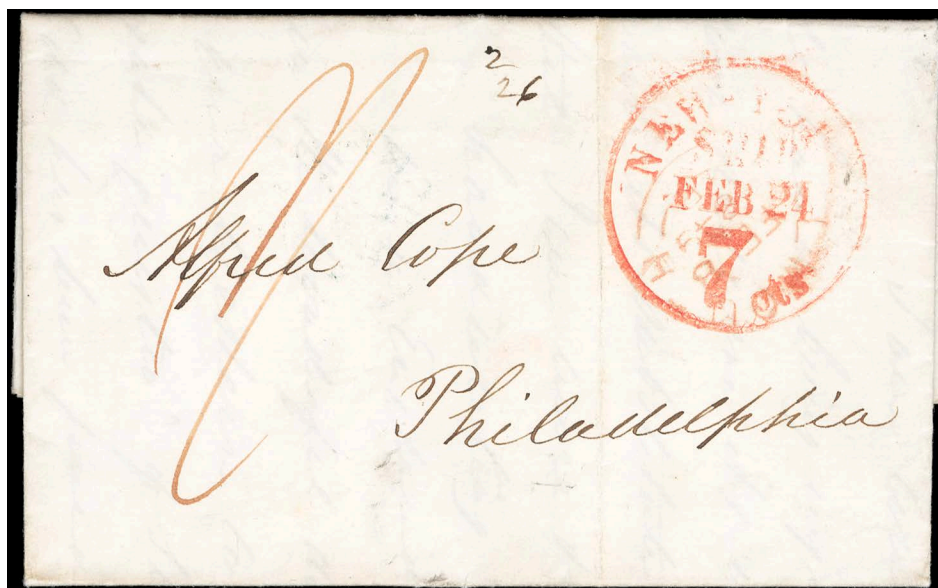 2
26
NEW-YOR
SHIP
FEB 24
7
cts
Alfred Cope
Philadelphia